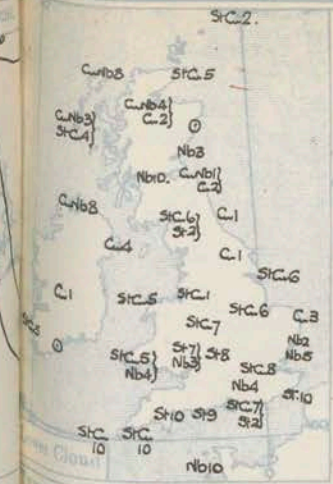 StC 2.
CuNb8 StC 5
CuNb4
Cu2
CuNb3
StC4
Nb3
Nb10.
CuNb1
Cu2
CuNb8
StC6
St2
Cu1
Cu4
Cu1
StC6
Cu1
StC5
StC1
StC6
Cu3
StC7
Nb2
Nb5
StC5
Nb4
St7
Nb3
St8
StC8
Nb4
St.10
St10 St9
StC7
St2
StC
10
StC
10
Nb10
Cloud